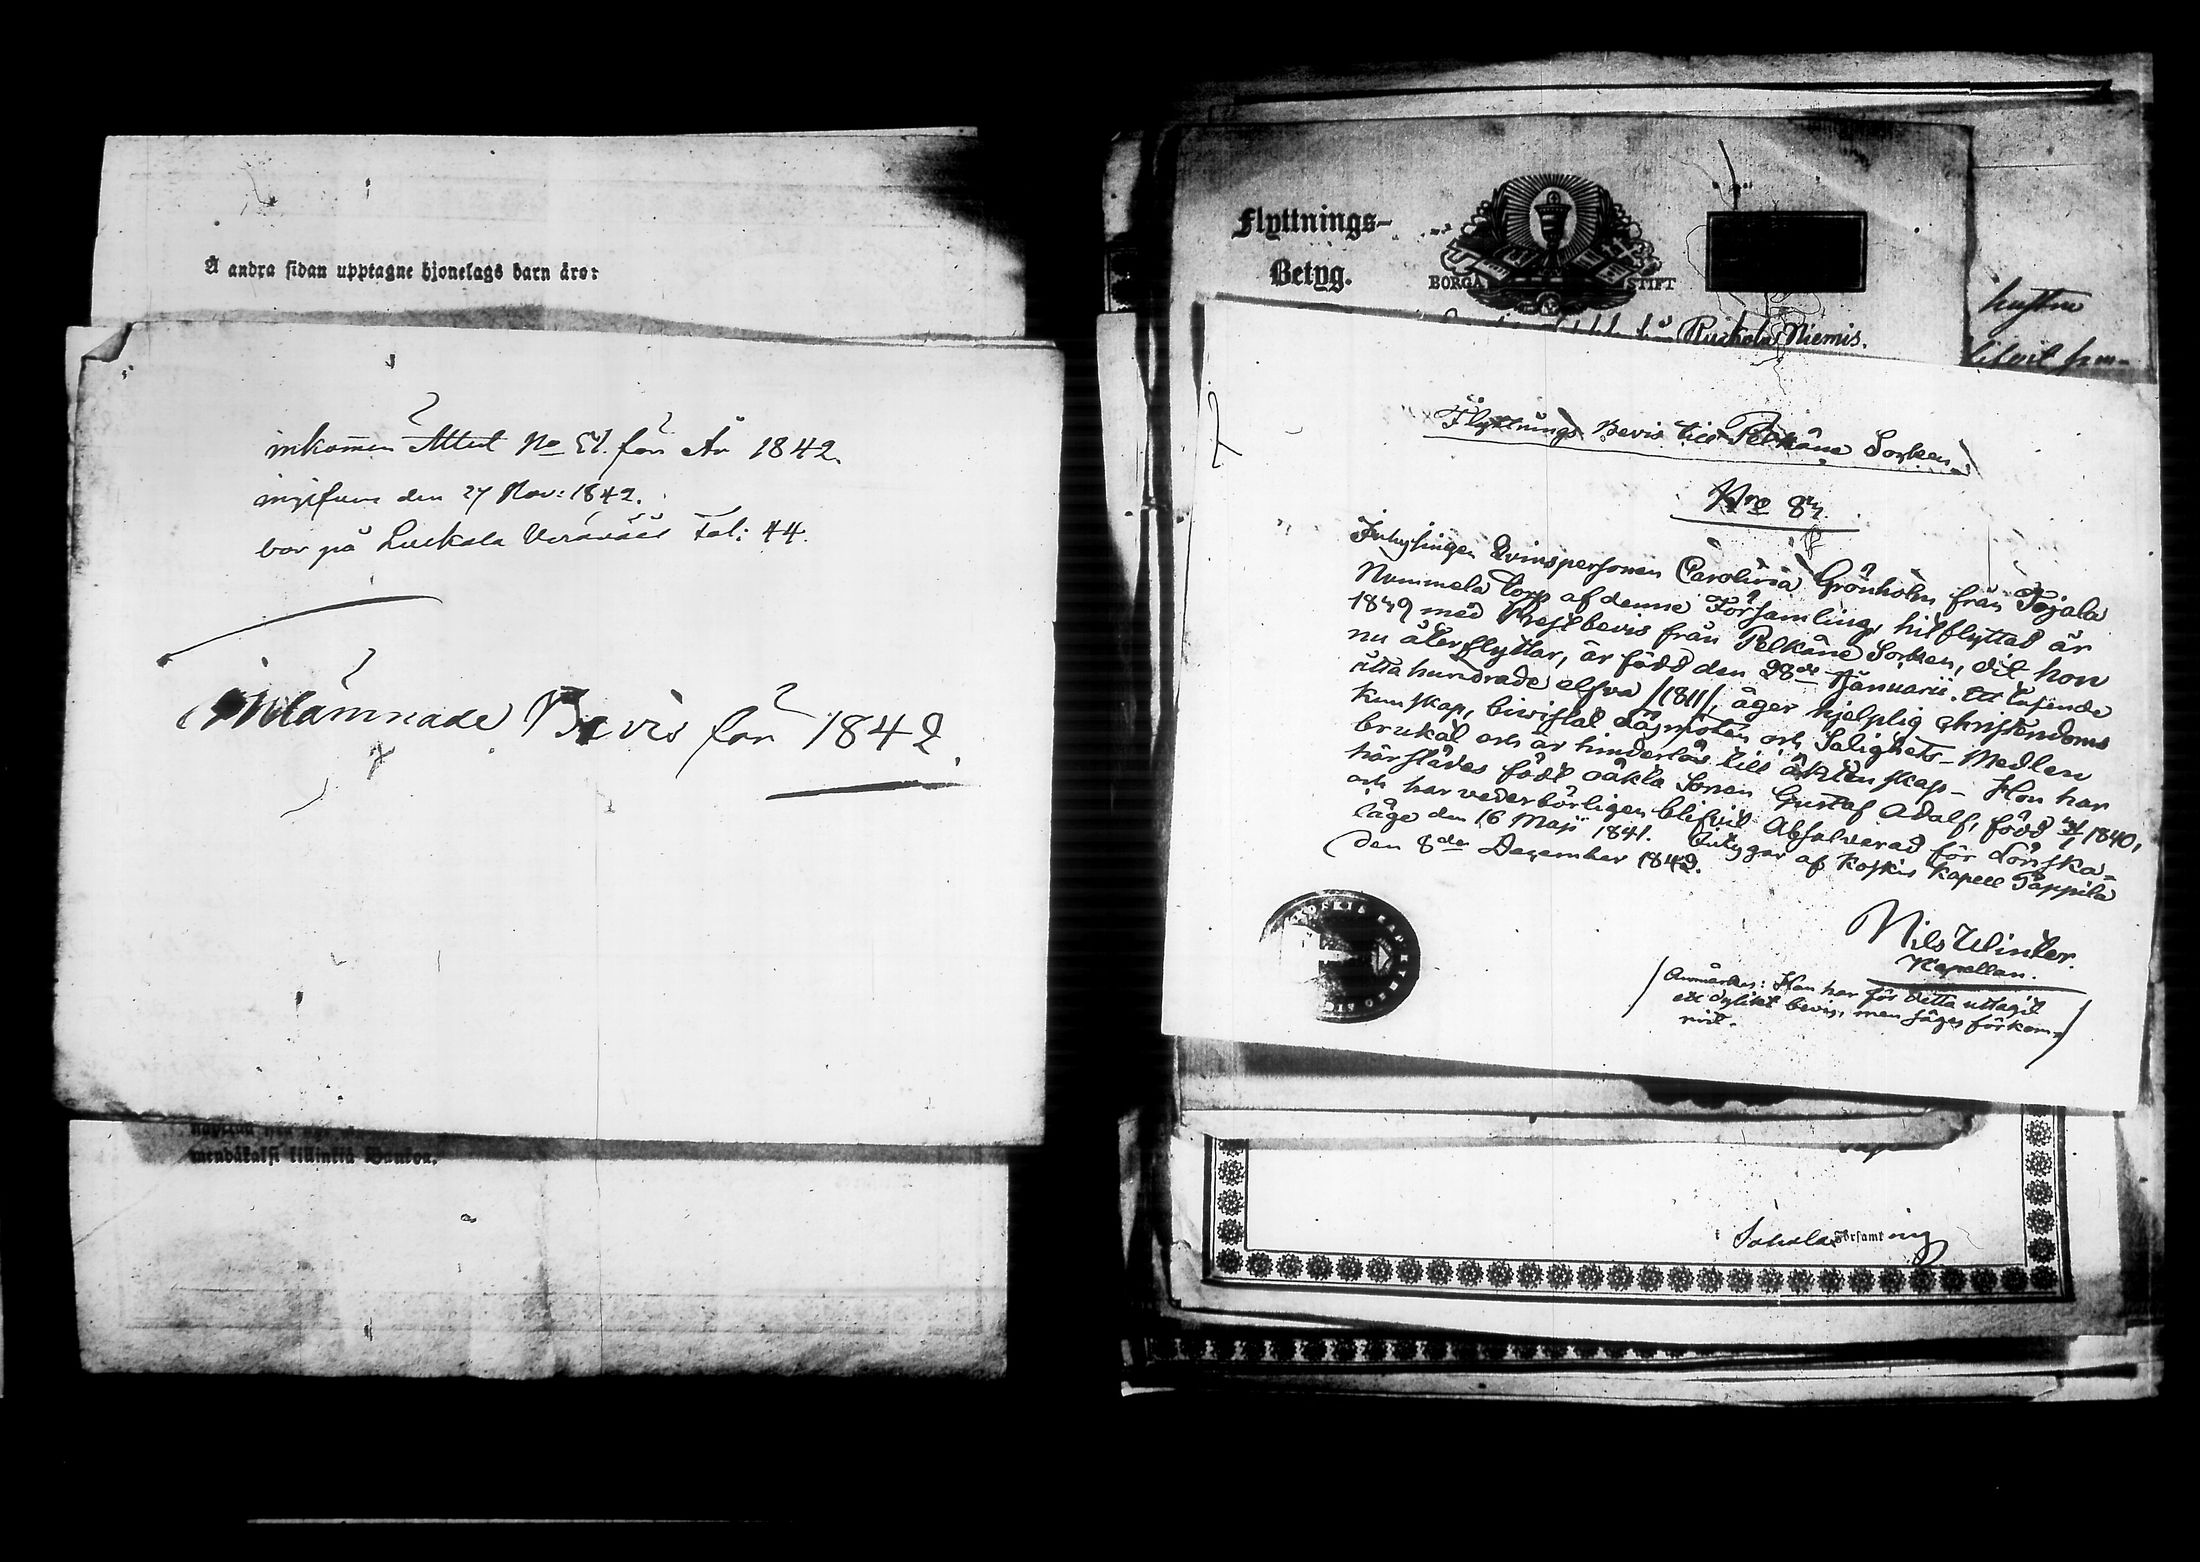 Å andra sidan upptagne hjonelags barn äro:
inkommen Attest No 51. för År 1842.
ingifven den 27 Nov: 1842.
bor på Luikala Fol: 44.
Inlämnade Bevis för 1842.
mendäkaksi
Flyttnings-
Betyg.
BORGÅ STIFT
Ruokola Niemis.
Flyttnings Bevis till Pelkäne Socken.
Nro 87.
Inhysingen Qvinspersonen Carolina Grönholm från Tojala
Nummela Torp af denne Församling, hitflyttad år
1839 med Prestbevis från Pelkäne Socken, dit hon
nu återflyttar, är född den 28de Januarii Ett tusende
åtta hundrade elfva /1811/, äger hjelplig christendoms
kunskap, bevistat Läsmöten och Salighets-Medlen
brukat och är hinderlös till äktenskap - Hon har
härstädes födt oäkta Sonen Gustaf Adolf, född 1840,
och har vederbörligen blifvit Absolverad för Lönska-
läge den 16 Maji 1841. Intygar af Koskis Kapell Pappila
den 8de December 1842.
Nils Winter.
Kapellan.
Anmärkes: Hon har för detta uttagit
ett dylikt bevis, men säges förkom-
mit.
Sahalax Församling